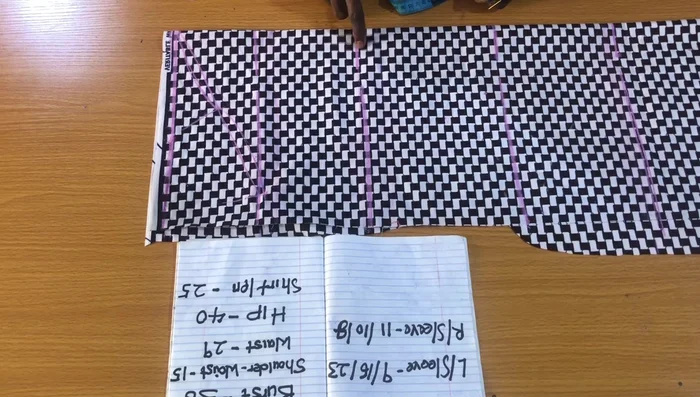 L/Sleeve-9/16/23
R/Sleeve-11/10/9
Burst -
Shoulder-Waist-15
Waist - 29
Hip - 40
Shirt/len - 25